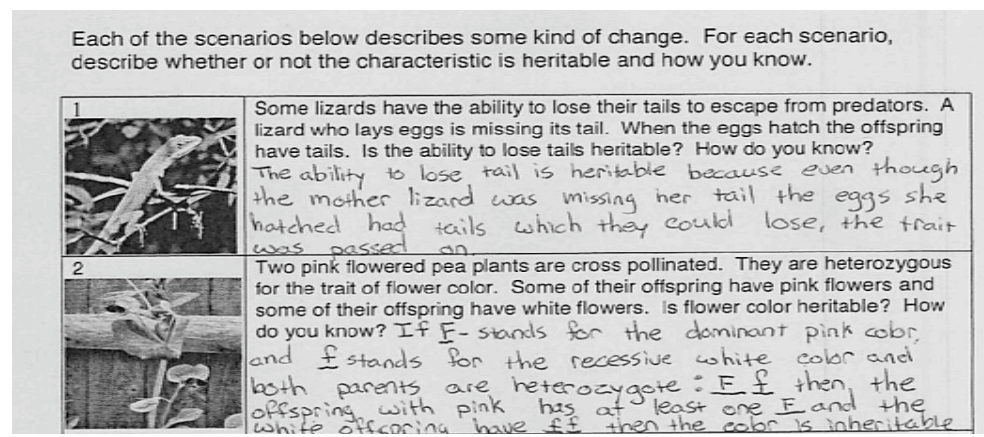 Each of the scenarios below describes some kind of change. For each scenario,
describe whether or not the characteristic is heritable and how you know.
1
Some lizards have the ability to lose their tails to escape from predators. A
lizard who lays eggs is missing its tail. When the eggs hatch the offspring
have tails. Is the ability to lose tails heritable? How do you know?
The ability to lose tail is heritable because even though
the mother lizard was missing her tail the eggs she
hatched had tails which they could lose, the trait
was passed on.
2
Two pink flowered pea plants are cross pollinated. They are heterozygous
for the trait of flower color. Some of their offspring have pink flowers and
some of their offspring have white flowers. Is flower color heritable? How
do you know? If F- stands for the dominant pink color,
and f stands for the recessive white color and
both parents are heterozygote : F f then, the
offspring with pink has at least one F and the
white offspring have ff then the color is inheritable